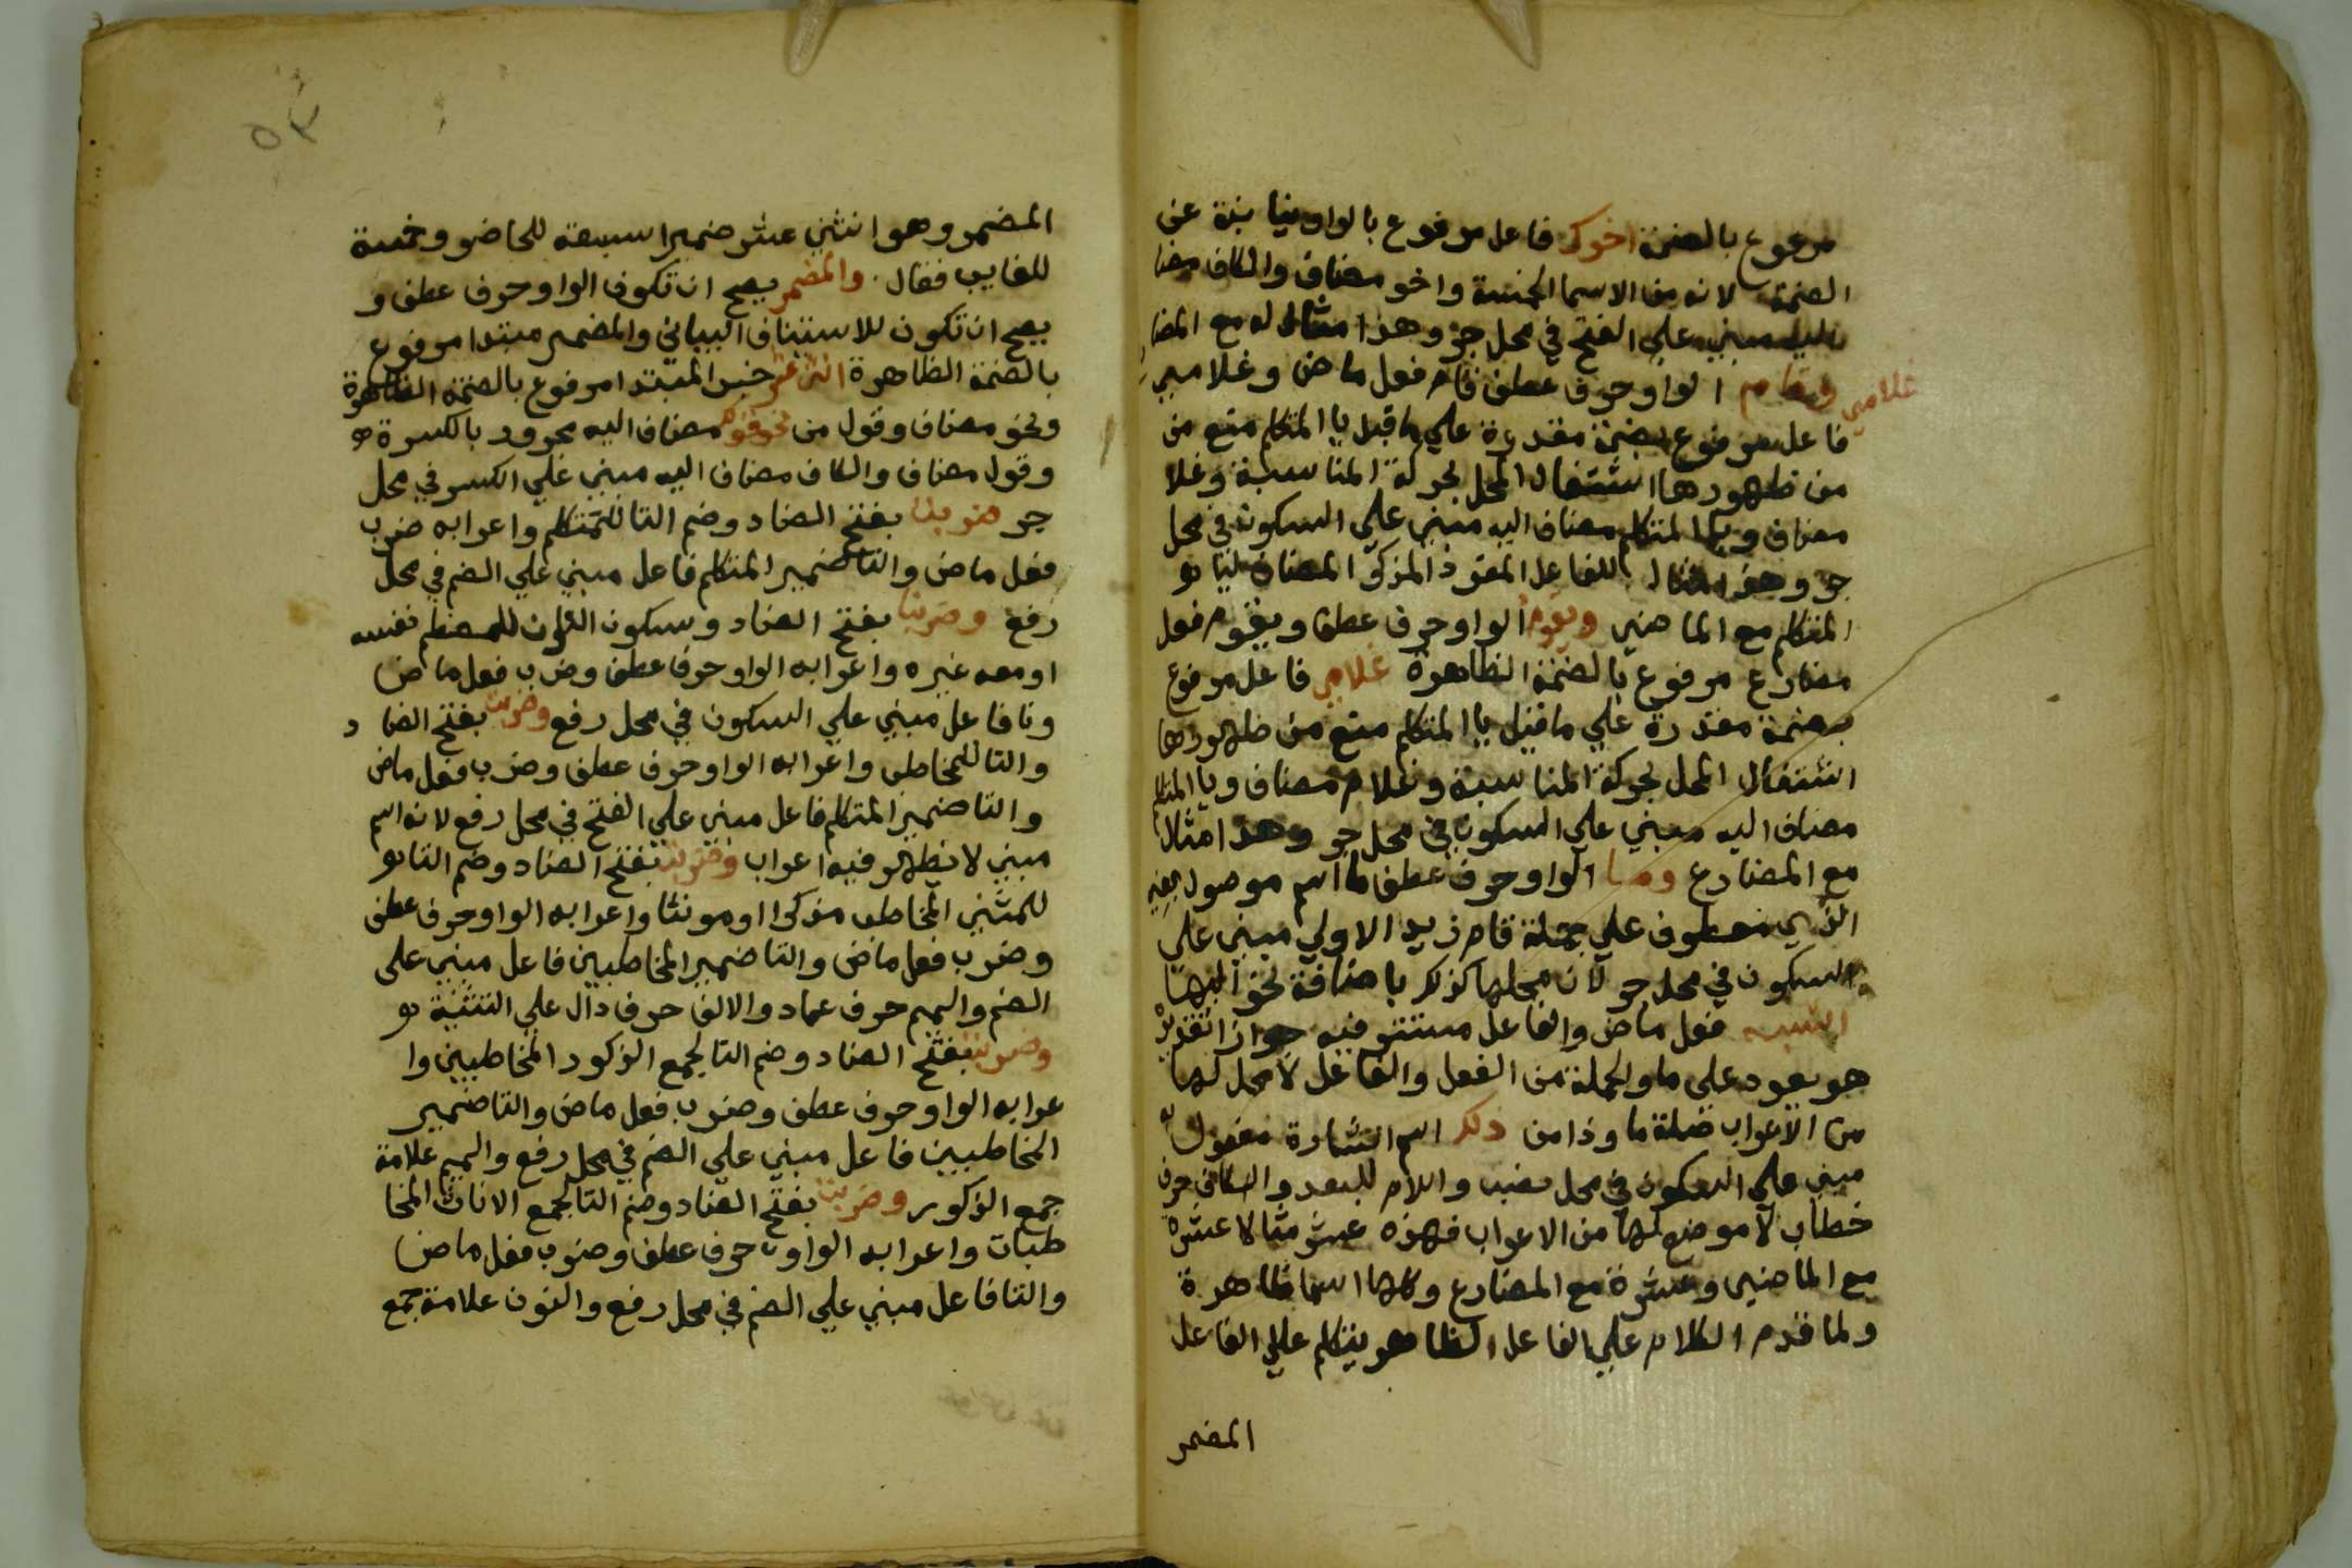 مرفوع بالضمة اخوك فاعل مرفوع بالواو نيابة عن
الضمة لانه من الاسما الخمسة واخو مضاف والكاف مضا
اليه مبني علي الفتح في محل جر وهذا مثال له مع المضا
وقام غلامي الواو حرف عطف قام فعل ماض وغلامي
فاعل مرفوع بضمة مقدرة علي ما قبل يا المتكلم منع من
من ظهورها اشتغال المحل بحركة المناسبة وغلا
مضاف ويا المتكلم مضاف اليه مبني علي السكون في محل
جر وهذا مثال للفاعل المفرد المذكر المضاف ليا
المتكلم مع الماضي ويقوم الواو حرف عطف ويقوم فعل
مضارع مرفوع بالضمة الظاهرة غلامي فاعل مرفوع
بضمة مقدرة علي ما قبل يا المتكلم منع من ظهورها
اشتغال المحل بحركة المناسبة وغلام مضاف ويا المتكلم
مضاف اليه مبني علي السكون في محل جر وهذا مثال
مع المضارع وما الواو حرف عطف ما اسم موصول بمعني
الذي معطوف علي جملة قام زيد الاولي مبني علي
السكون في محل جر لان محلها كذلك باضافة نحو اليها
اشبه فعل ماض والفاعل مستتر فيه جوازا تقديره
هو يعود علي ما والجملة من الفعل والفاعل لا محل لها
من الاعراب صلة ما وذا من ذلك اسم اشارة مفعول به
مبني علي السكون في محل نصب واللام للبعد والكاف حرف
خطاب لا موضع لها من الاعراب فهذه عشر مثالا عشرة
مع الماضي وعشرة مع المضارع وكلها اسما ظاهرة
ولما قدم الكلام علي الفاعل الظاهر يتكلم علي الفاعل
المضمر
٥٣
المضمر وهو اثني عشر ضميرا سبعة للحاضر وخمسة
للغايب فقال والمضمر يصح ان تكون الواو حرف عطف و
يصح ان تكون للاستناف البياني والمضمر مبتدا مرفوع
بالضمة الظاهرة اثني عشر خبر المبتدا مرفوع بالضمة الظاهرة
ونحو مضاف وقول من نحو قولك مضاف اليه مجرور بالكسرة
وقول مضاف والكاف مضاف اليه مبني علي الكسر في محل
جر ضربت بفتح الضاد وضم التا للمتكلم واعرابه ضرب
فعل ماض والتا ضمير المتكلم فاعل مبني علي الضم في محل
رفع وضربنا بفتح الضاد وسكون للمعظم نفسه
او معه غيره واعرابه الواو حرف عطف وضرب فعل ماض
ونا فاعل مبني علي السكون في محل رفع وضربت بفتح الضاد
والتا للمخاطب واعرابه الواو حرف عطف وضرب فعل ماض
والتا ضمير المتكلم فاعل مبني علي الفتح في محل رفع لانه اسم
مبني لا يظهر فيه اعراب وضربتما بفتح الضاد وضم التا
للمثني المخاطب مذكرا او مونثا واعرابه الواو حرف عطف
وضرب فعل ماض والتا ضمير المخاطبين فاعل مبني علي
الضم والميم حرف عماد والالف حرف دال علي التثنية
وضربتم بفتح الضاد وضم التا لجمع الذكور المخاطبين وا
عرابه الواو حرف عطف وضرب فعل ماض والتا ضمير
المخاطبين فاعل مبني علي الضم في محل رفع والميم علامة
جمع الذكور وضربتن بفتح الضاد وضم التا لجمع الاناث المخا
طبات واعرابه الواو حرف عطف وضرب فعل ماض
والتا فاعل مبني علي الضم في محل رفع والنون علامة جمع